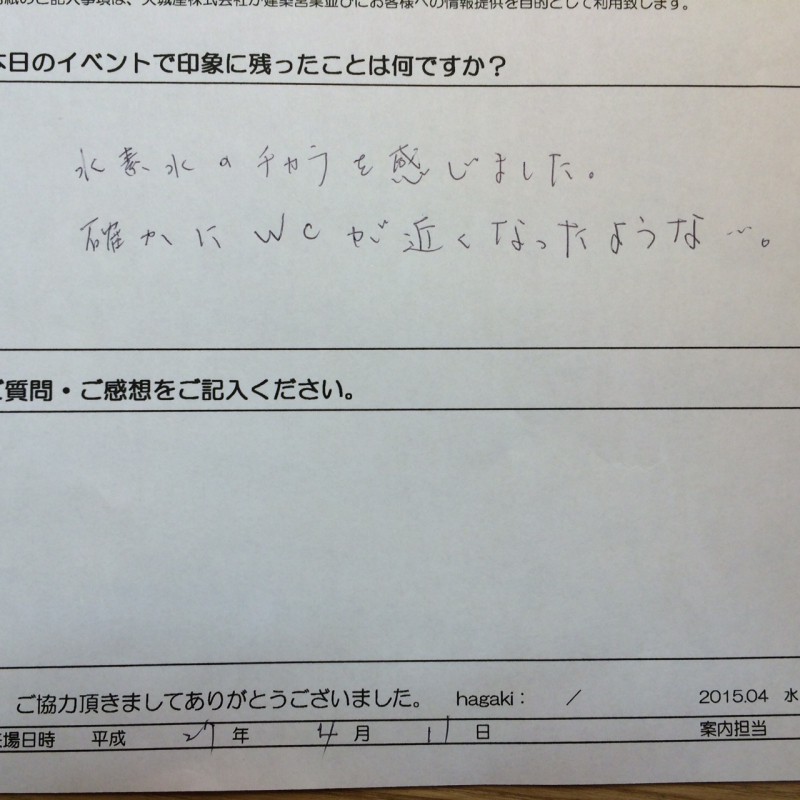 のご記入事項は、大城産株式会社が建築営業並びにお客様への情報提供を目的として利用致します。
本日のイベントで印象に残ったことは何ですか？
水素水のチカラを感じました。
確かにWCが近くなったような…。
ご質問・ご感想をご記入ください。
ご協力頂きましてありがとうございました。 hagaki： ／ 2015.04 水
来場日時 平成 27 年 4 月 11 日 案内担当